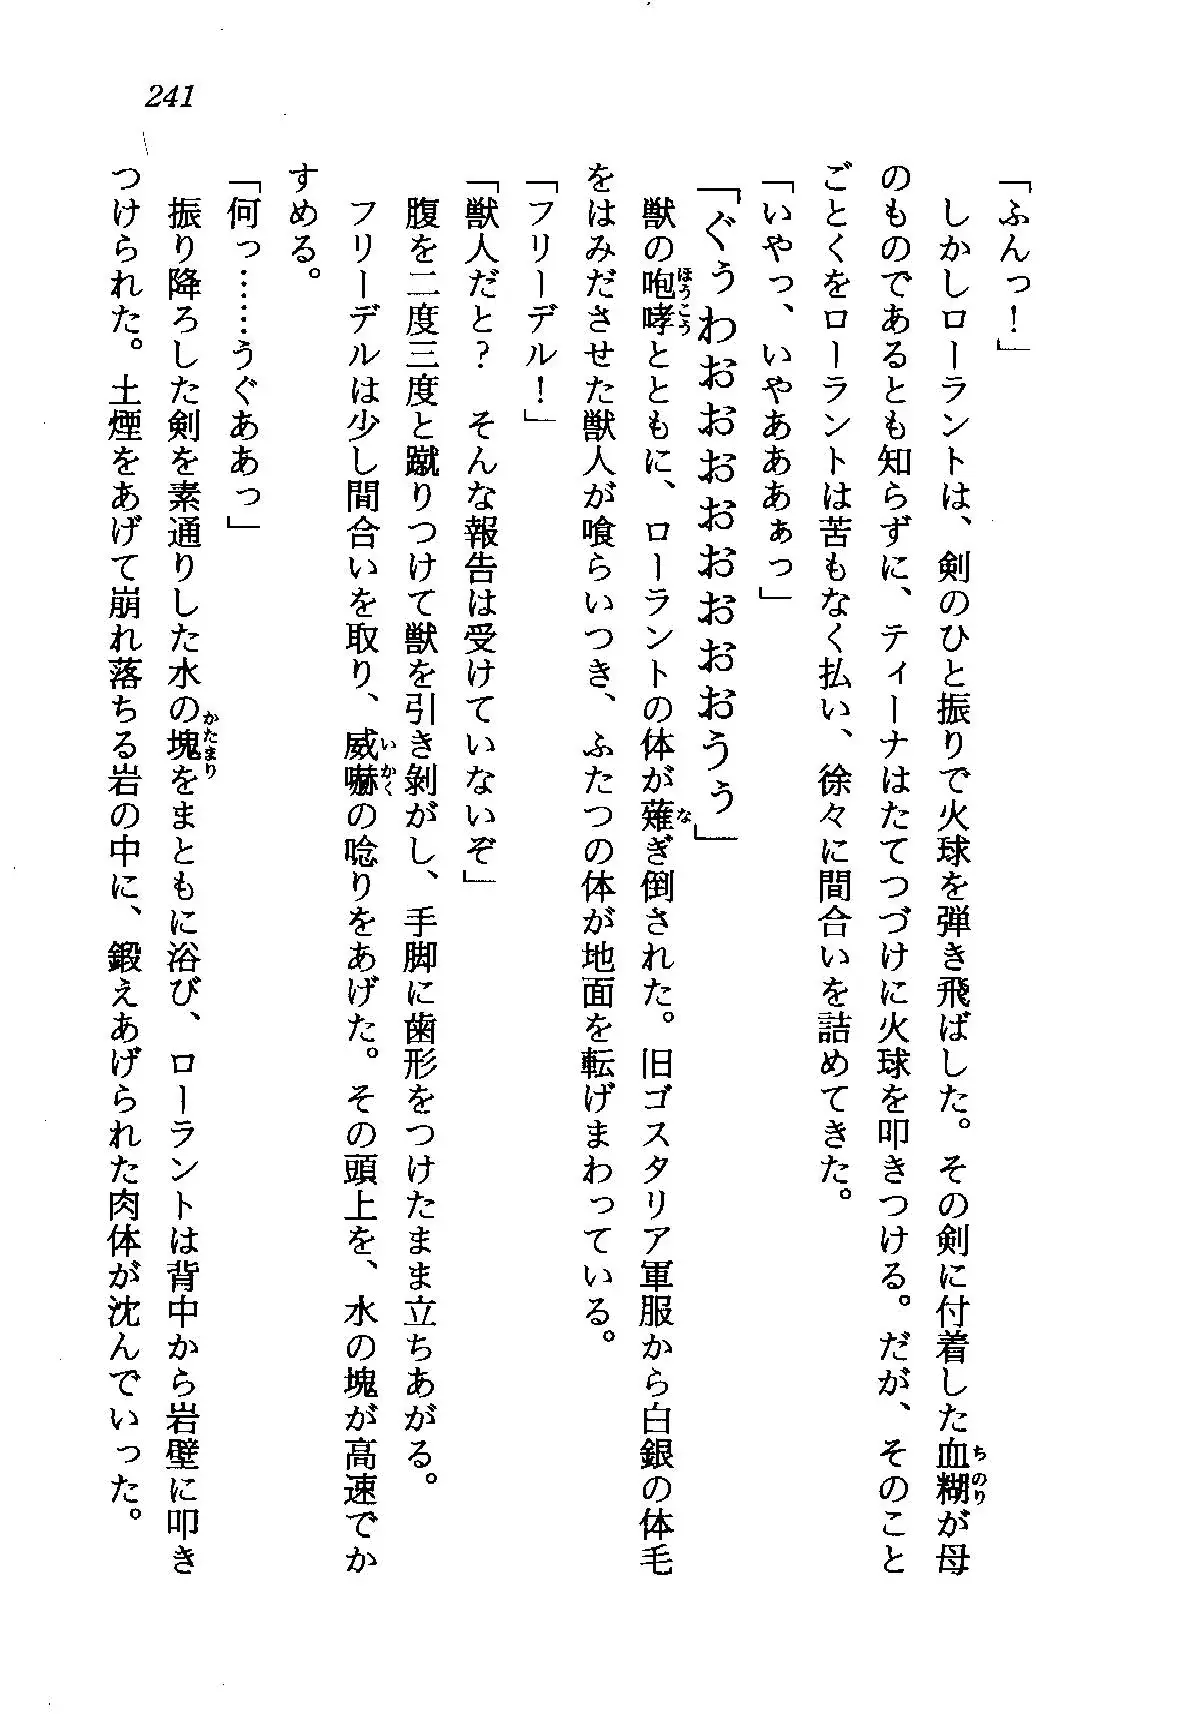 241
「ふんっ！」
しかしローラントは、剣のひと振りで火球を弾き飛ばした。その剣に付着した血糊が母
のものであるとも知らずに、ティーナはたてつづけに火球を叩きつける。だが、そのこと
ごとくをローラントは苦もなく払い、徐々に間合いを詰めてきた。
「いやっ、いやあああぁっ」
「ぐぅわおおおおおおおおおうぅ」
獣の咆哮とともに、ローラントの体が薙ぎ倒された。旧ゴスタリア軍服から白銀の体毛
をはみださせた獣人が喰らいつき、ふたつの体が地面を転げまわっている。
「フリーデル！」
「獣人だと？　そんな報告は受けていないぞ」
腹を二度三度と蹴りつけて獣を引き剝がし、手脚に歯形をつけたまま立ちあがる。
フリーデルは少し間合いを取り、威嚇の唸りをあげた。その頭上を、水の塊が高速でか
すめる。
「何っ……うぐああっ」
振り降ろした剣を素通りした水の塊をまともに浴び、ローラントは背中から岩壁に叩き
つけられた。土煙をあげて崩れ落ちる岩の中に、鍛えあげられた肉体が沈んでいった。